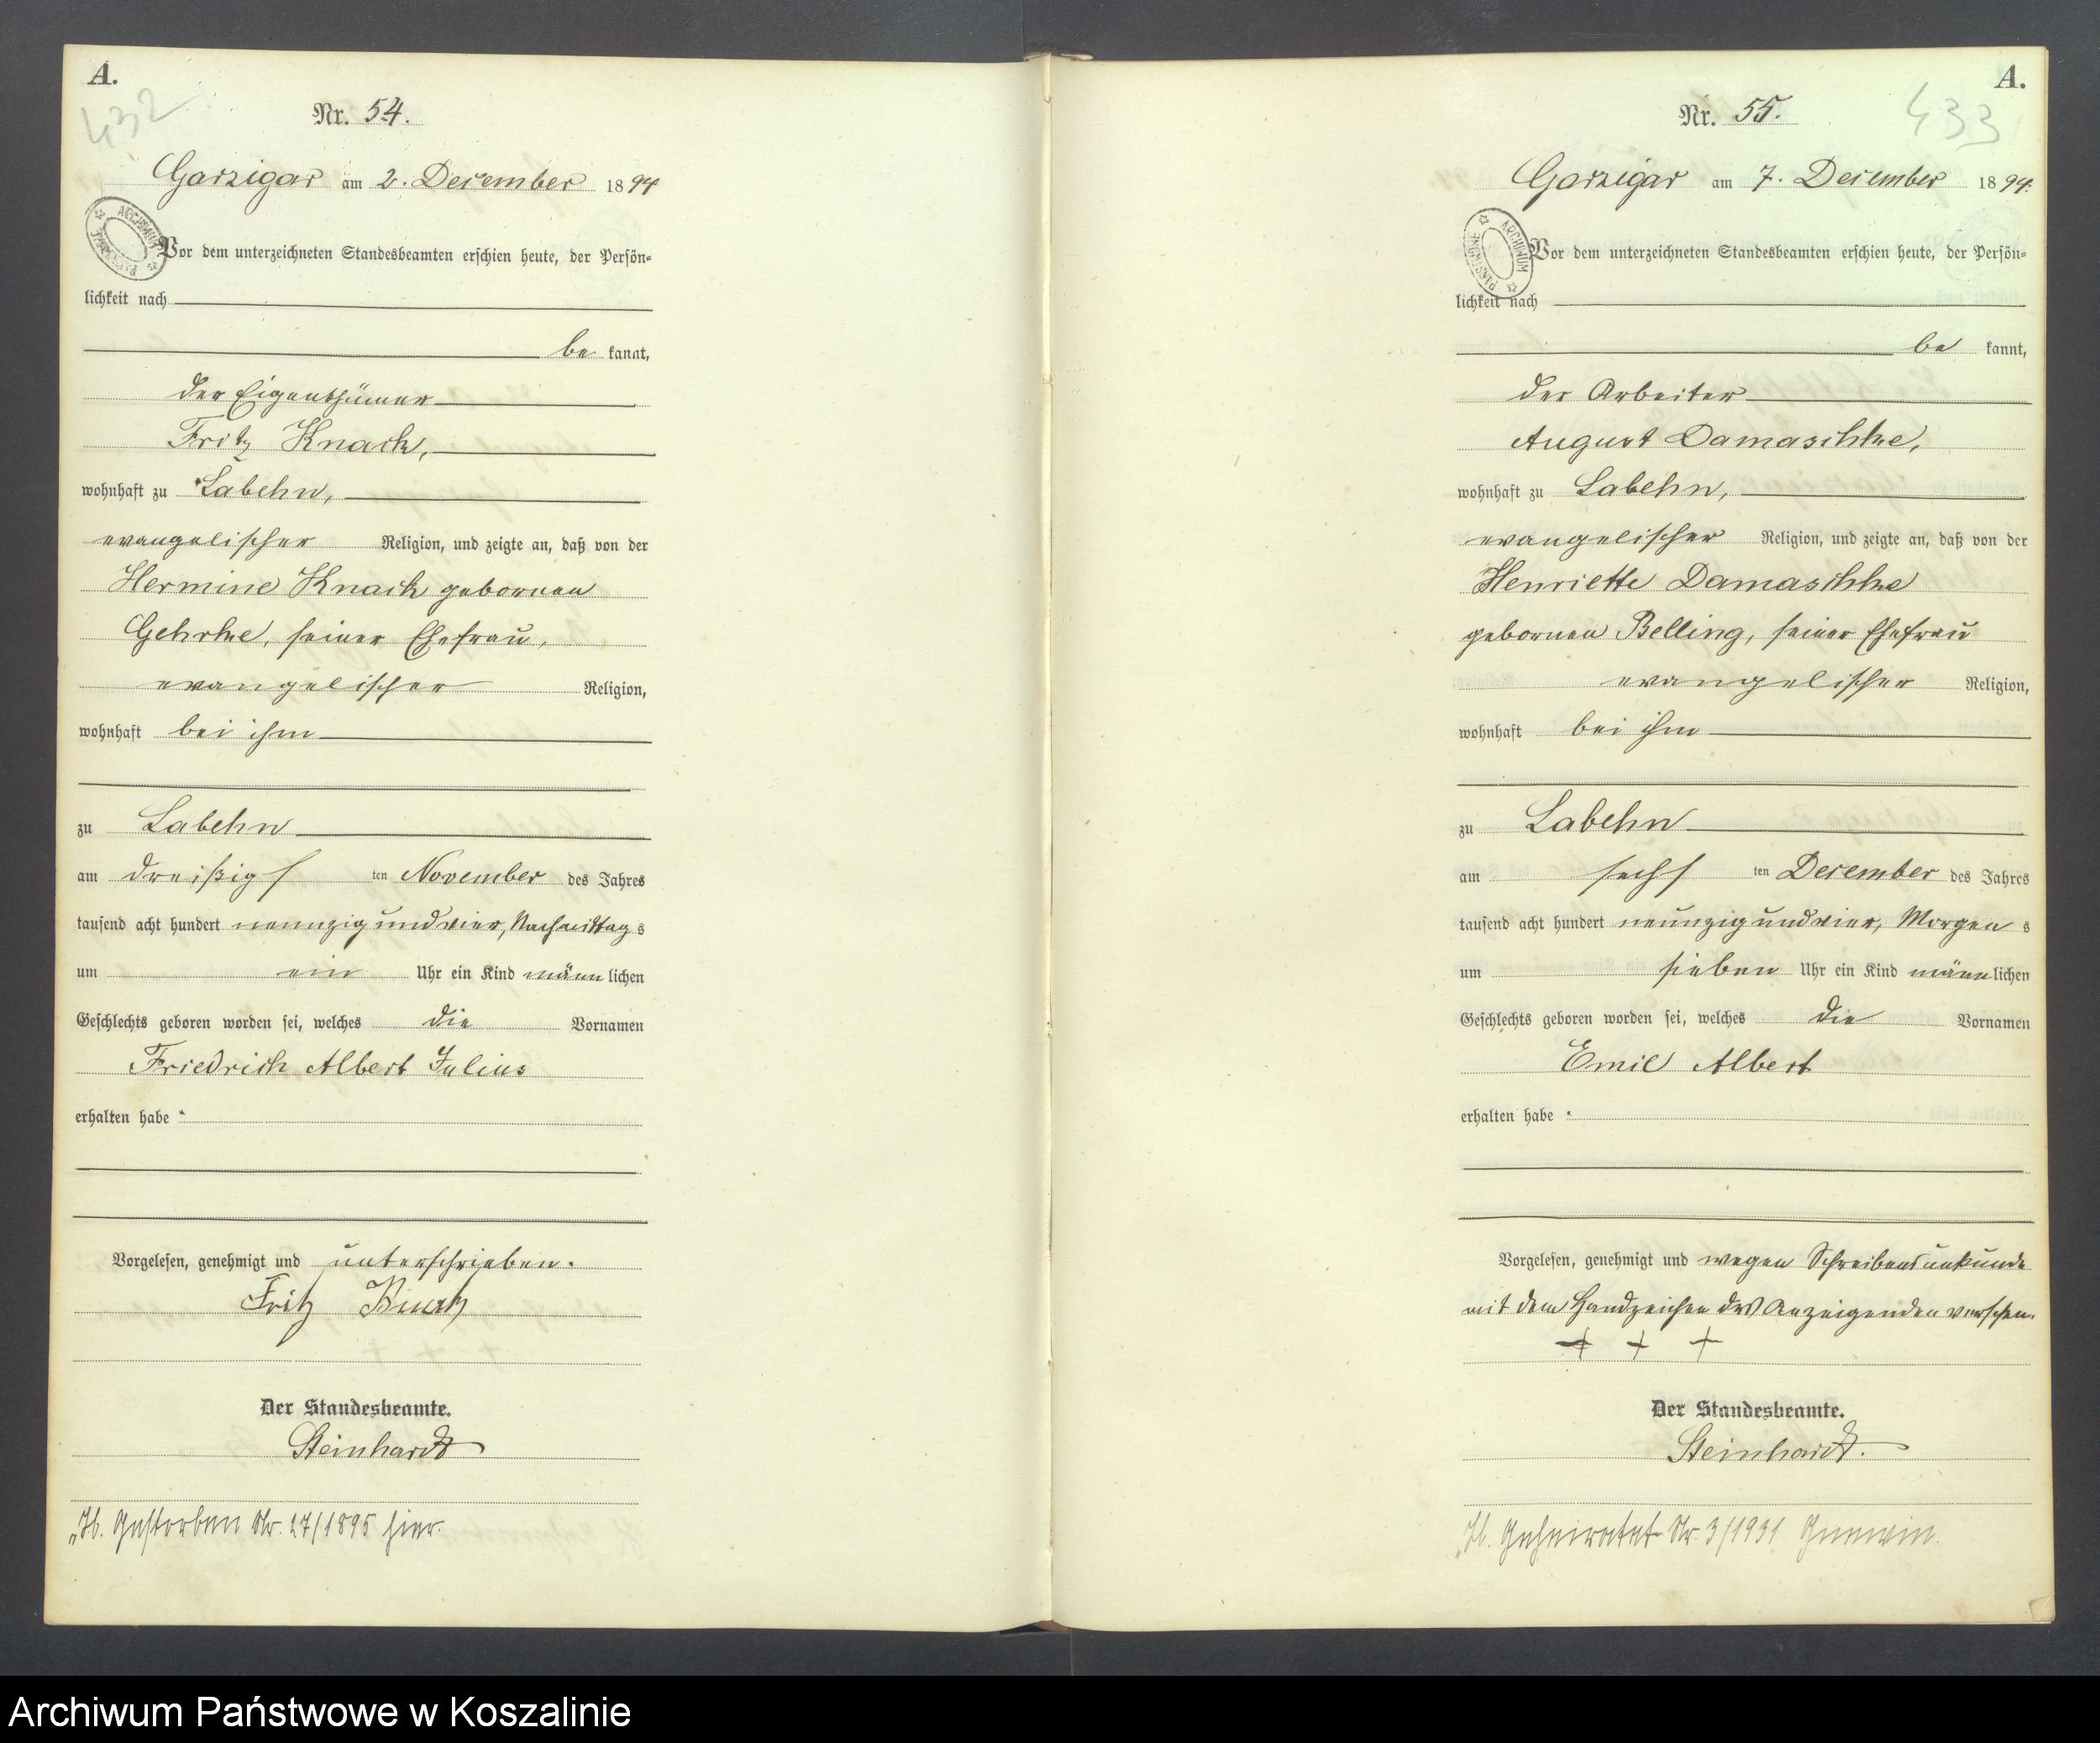 A.
432
Nr. 54.
Garzigar am 2. December 1894
ARCHIWUM PAŃSTWOWE
Vor dem unterzeichneten Standesbeamten erschien heute, der Persön=
lichkeit nach
be kannt,
der Eigenthümer
Fritz Knack,
wohnhaft zu Labehn,
evangelischer Religion, und zeigte an, daß von der
Hermine Knack gebornen
Gehrke, seiner Ehefrau,
evangelischer Religion,
wohnhaft bei ihm
zu Labehn
am dreißigs ten November des Jahres
tausend acht hundert neunzig und vier, Nachmittag s
um ein Uhr ein Kind männ lichen
Geschlechts geboren worden sei, welches die Vornamen
Friedrich Albert Julius
erhalten habe.
Vorgelesen, genehmigt und unterschrieben.
Fritz Knack
Der Standesbeamte.
Steinhardt
Gestorben Nr. 27/1895 hier.
A.
433
Nr. 55.
Garzigar am 7. December 1894.
ARCHIWUM PAŃSTWOWE
Vor dem unterzeichneten Standesbeamten erschien heute, der Persön=
lichkeit nach
be kannt,
der Arbeiter
August Damaschke,
wohnhaft zu Labehn,
evangelischer Religion, und zeigte an, daß von der
Henriette Damaschke
gebornen Belling, seiner Ehefrau
evangelischer Religion,
wohnhaft bei ihm
zu Labehn
am sechs ten December des Jahres
tausend acht hundert neunzig und vier, Morgen s
um sieben Uhr ein Kind männ lichen
Geschlechts geboren worden sei, welches die Vornamen
Emil Albert
erhalten habe.
Vorgelesen, genehmigt und wegen Schreibensunkunde
mit dem Handzeichen des Anzeigenden versehen.
+ + +
Der Standesbeamte.
Steinhardt.
Geheiratet Nr. 3/1931
Archiwum Państwowe w Koszalinie